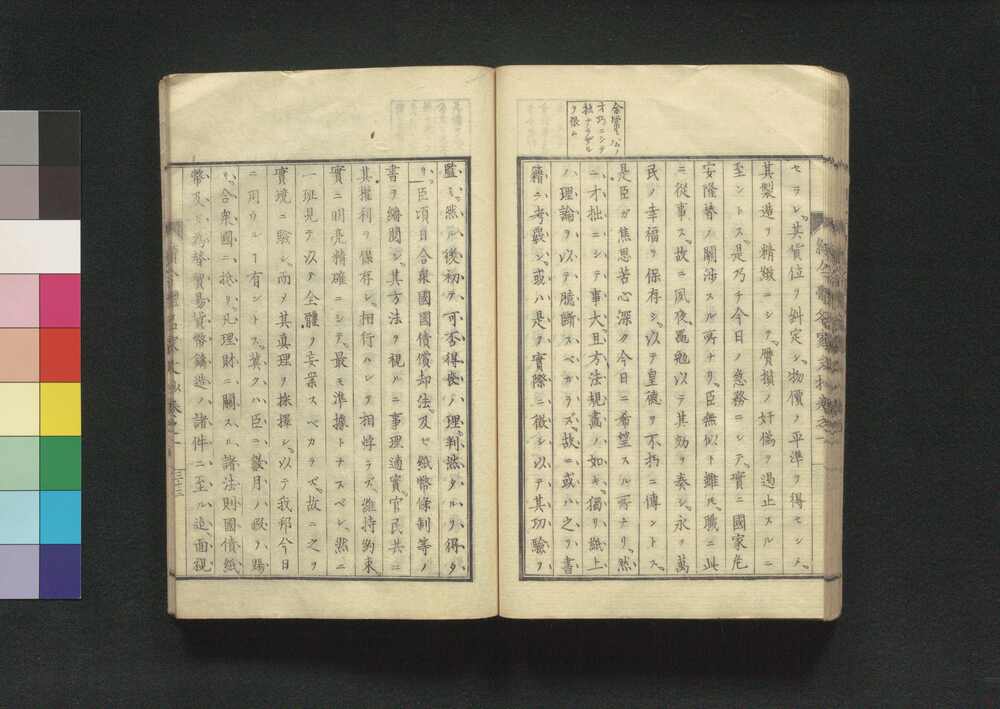 セラレ其貨位ヲ糾定シ物價ノ平準ヲ得セシテ
其製造ヲ精緻ニシテ贋損ノ奸偽ヲ遏止スルニ
至ントス是乃チ今日ノ急務ニシテ實ニ國家危
安隆替ノ關渉スル所ナリ臣無似ト雖モ職ニ此
ニ從事ス故ニ夙夜黽勉以テ其効ヲ奏シ永ク萬
民ノ幸福ヲ保存シ以テ皇德ヲ不朽ニ傳ントス
是臣ガ焦思苦心深ク今日ニ希望スル所ナリ然
ニ才拙ニシテ事大且方法規畫ノ如キ獨リ紙上
ノ理論ヲ以テ臆斷スベカラズ故ニ或ハ之ヲ書
籍ニ考覈シ或ハ是ヲ實際ニ徴シ以テ其功驗ヲ
監ミ然ル後初テ可否得喪ノ理判然タルヲ得タ
リ臣項目合衆國國債償却法及ビ紙幣條制等ノ
書ヲ繙閲シ其方法ヲ視ルニ事理適實官民共ニ
其權利ヲ保存シ相行ハレテ相悖ラズ維持約束
實ニ明亮精確ニシテ最モ準據トナスベシ然ニ
一班見テ以テ全體ヲ妄案スベカラズ故ニ之ヲ
實境ニ驗シ而メ其真理ヲ採擇シ以テ我邦今日
ニ用ウルヿ有ントス冀クハ臣ニ數月ノ暇ヲ賜
リ合衆國ニ抵リ凡理財ニ關スル諸法則國債紙
幣及ビ為替貿易貨幣鑄造ノ諸件ニ至ル迄面視